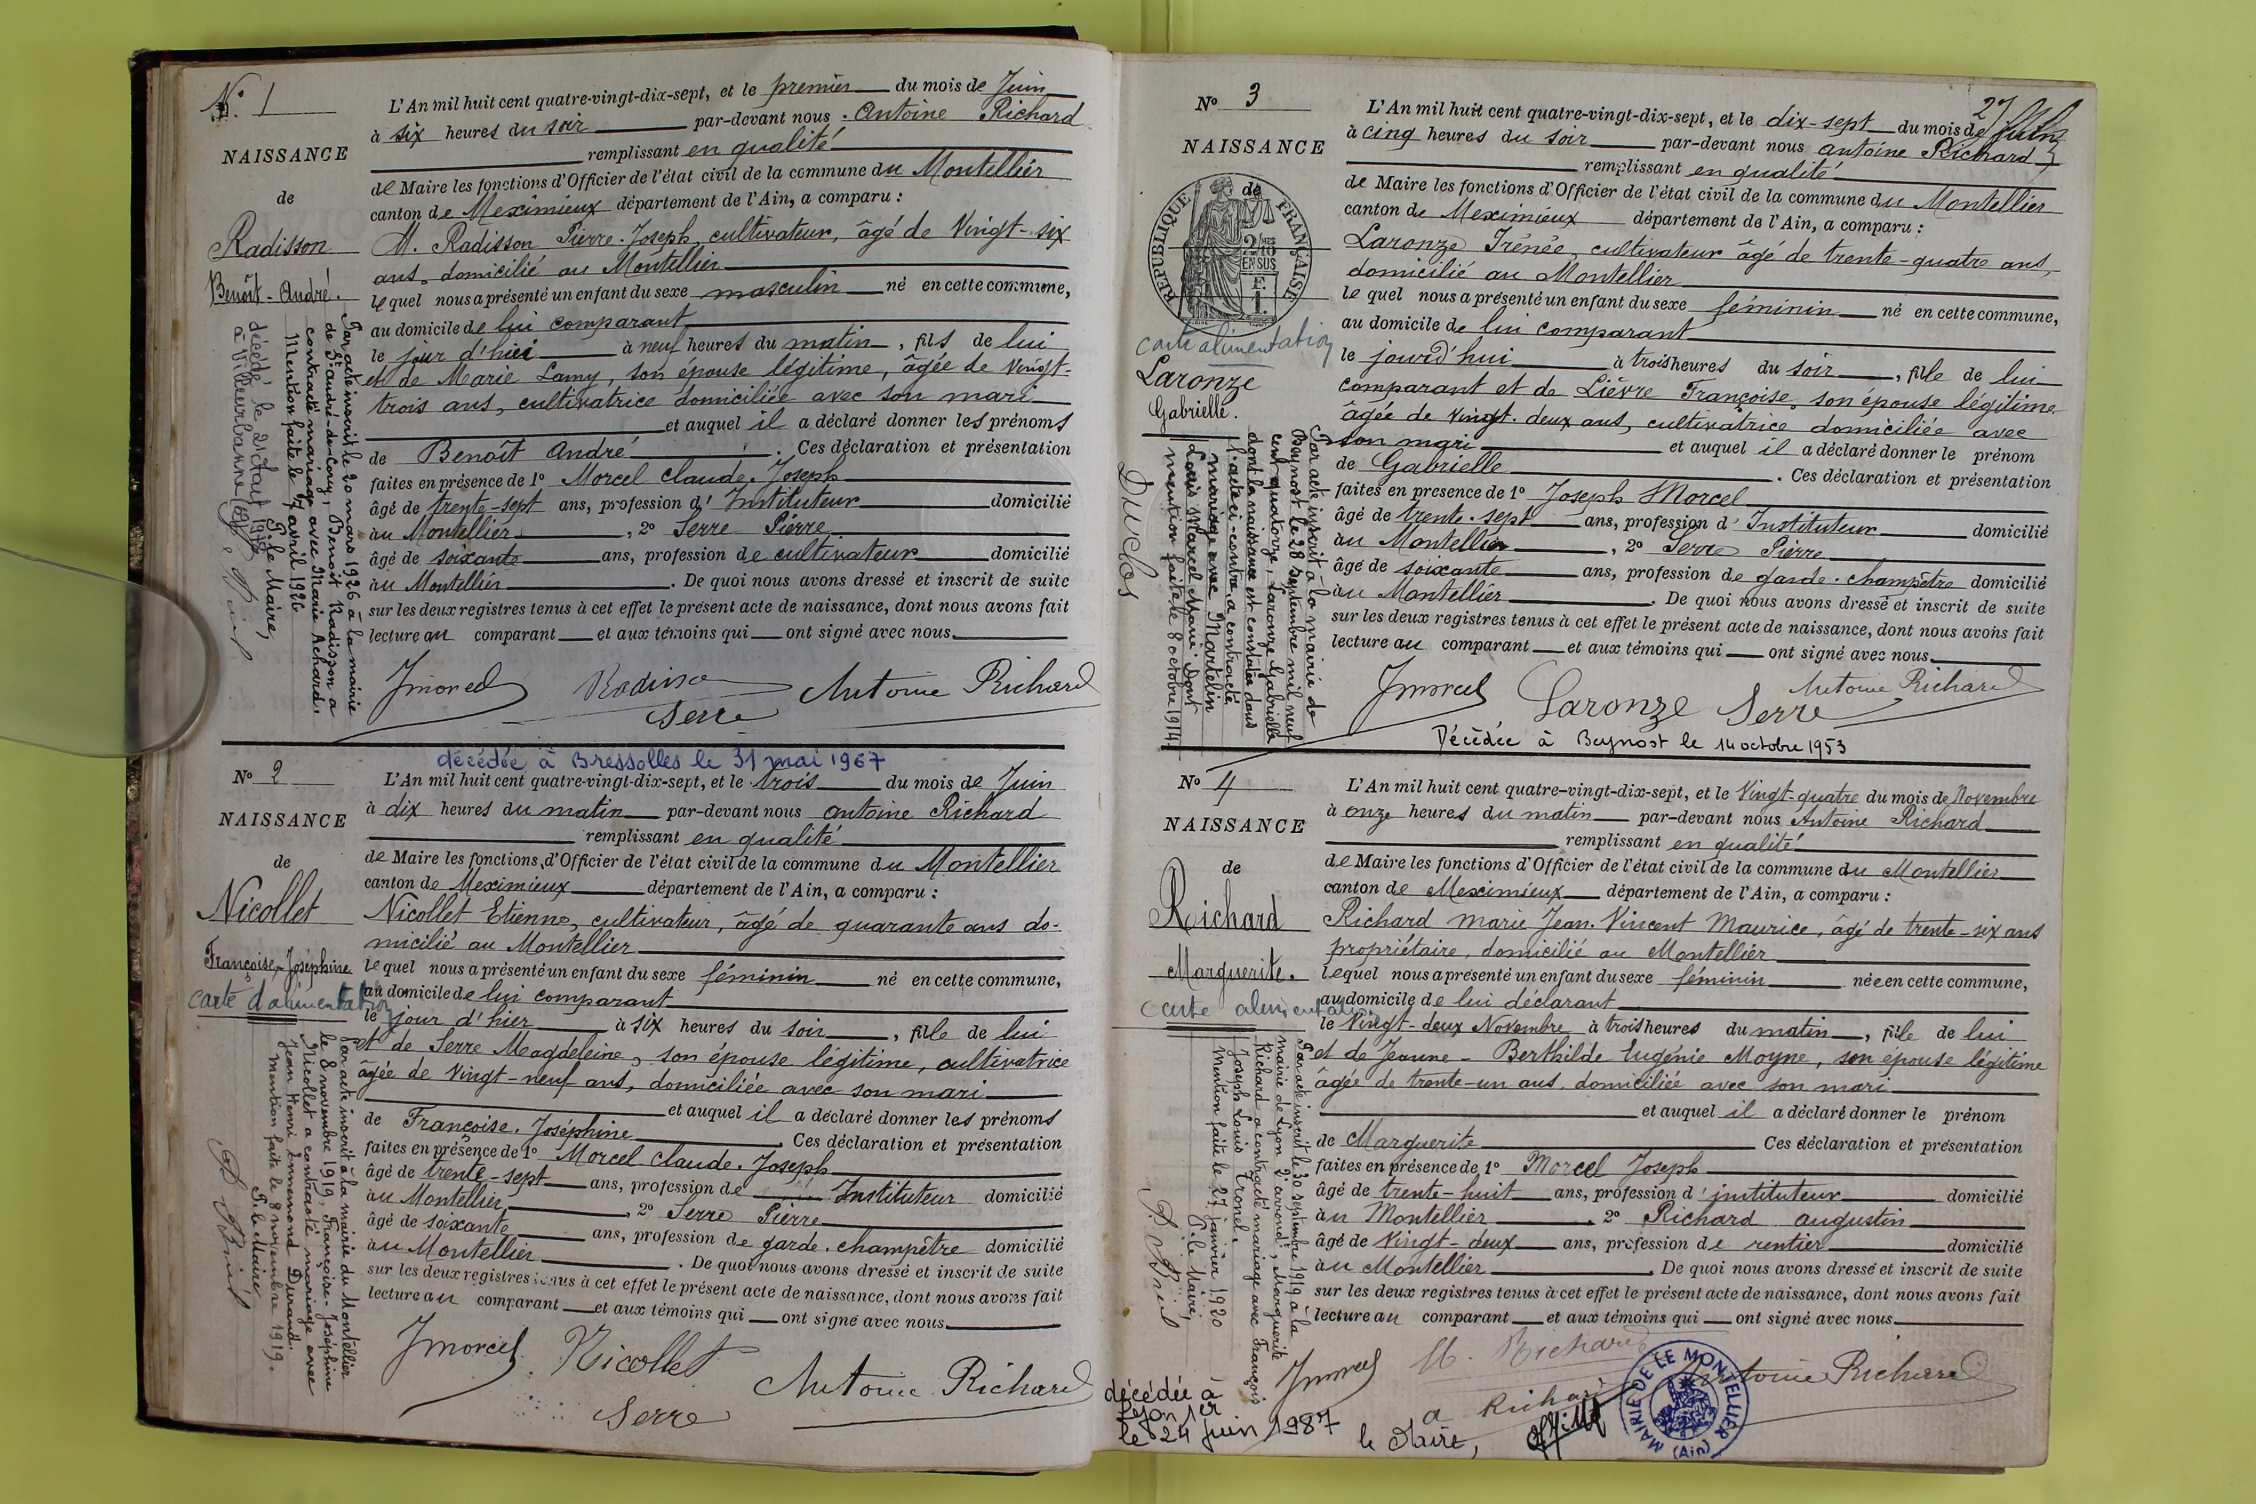 N° 1
NAISSANCE
de
Radisson
Benoît-André.
Par acte inscrit le 20 mars 1926 à la mairie
de St André-de-Corcy, Benoît Radisson a
contracté mariage avec Marie Achard.
Mention faite le 7 avril 1926
P. le Maire,
décédé le
à Villeurbanne
L'An mil huit cent quatre-vingt-dix-sept, et le premier du mois de Juin
à six heures du soir par-devant nous Antoine Richard
remplissant en qualité
de Maire les fonctions d'Officier de l'état civil de la commune du Montellier
canton de Meximieux département de l'Ain, a comparu :
M. Radisson Pierre-Joseph, cultivateur, âgé de Vingt-six
ans, domicilié au Montellier
lequel nous a présenté un enfant du sexe masculin né en cette commune,
au domicile de lui comparant
le jour d'hier à neuf heures du matin, fils de lui
et de Marie Lamy, son épouse légitime, âgée de Vingt-
trois ans, cultivatrice domiciliée avec son mari
et auquel il a déclaré donner les prénoms
de Benoît André. Ces déclaration et présentation
faites en présence de 1° Morcel Claude-Joseph
âgé de trente-sept ans, profession d'Instituteur domicilié
au Montellier, 2° Serre Pierre
âgé de soixante ans, profession de cultivateur domicilié
au Montellier. De quoi nous avons dressé et inscrit de suite
sur les deux registres tenus à cet effet le présent acte de naissance, dont nous avons fait
lecture au comparant et aux témoins qui ont signé avec nous.
Jmorcel Radisson Antoine Richard
Serre
décédée à Bressolles le 31 mai 1967
N° 2
NAISSANCE
de
Nicollet
Françoise-Joséphine
carte d'alimentation
Par acte inscrit à la mairie du Montellier
le 8 novembre 1919, Françoise-Joséphine
Nicollet a contracté mariage avec
Jean Henri Ennemond Durand.
Mention faite le 8 novembre 1919.
P. le Maire
L'An mil huit cent quatre-vingt-dix-sept, et le trois du mois de Juin
à dix heures du matin par-devant nous Antoine Richard
remplissant en qualité
de Maire les fonctions d'Officier de l'état civil de la commune du Montellier
canton de Meximieux département de l'Ain, a comparu :
Nicollet Etienne, cultivateur, âgé de quarante ans do-
micilié au Montellier
lequel nous a présenté un enfant du sexe féminin né en cette commune,
au domicile de lui comparant
le jour d'hier à six heures du soir, fille de lui
et de Serre Magdeleine, son épouse légitime, cultivatrice
âgée de Vingt-neuf ans, domiciliée avec son mari
et auquel il a déclaré donner les prénoms
de Françoise-Joséphine Ces déclaration et présentation
faites en présence de 1° Morcel Claude-Joseph
âgé de trente-sept ans, profession de Instituteur domicilié
au Montellier, 2° Serre Pierre
âgé de soixante ans, profession de garde-champêtre domicilié
au Montellier. De quoi nous avons dressé et inscrit de suite
sur les deux registres tenus à cet effet le présent acte de naissance, dont nous avons fait
lecture au comparant et aux témoins qui ont signé avec nous.
Jmorcel Nicollet Antoine Richard
Serre
27
N° 3
NAISSANCE
de
REPUBLIQUE FRANÇAISE
Carte alimentation
Laronze
Gabrielle.
Par acte inscrit à la mairie de
Beynost le 28 Septembre mil neuf
cent quatorze, Laronze Gabrielle
dont la naissance est constatée dans
l'acte ci-contre, a contracté
mariage avec Martelin
Louis Marcel Marie. Dont
mention faite le 8 octobre 1914.
Duclos
L'An mil huit cent quatre-vingt-dix-sept, et le dix-sept du mois de Juin
à cinq heures du soir par-devant nous Antoine Richard
remplissant en qualité
de Maire les fonctions d'Officier de l'état civil de la commune du Montellier
canton de Meximieux département de l'Ain, a comparu :
Laronze Irénée, cultivateur âgé de trente-quatre ans,
domicilié au Montellier
lequel nous a présenté un enfant du sexe féminin né en cette commune,
au domicile de lui comparant
le jourd'hui à trois heures du soir, fille de lui
comparant et de Lièvre Françoise, son épouse légitime
âgée de Vingt-deux ans, cultivatrice domiciliée avec
son mari et auquel il a déclaré donner le prénom
de Gabrielle. Ces déclaration et présentation
faites en présence de 1° Joseph Morcel
âgé de trente-sept ans, profession d'Instituteur domicilié
au Montellier, 2° Serre Pierre
âgé de soixante ans, profession de garde-champêtre domicilié
au Montellier. De quoi nous avons dressé et inscrit de suite
sur les deux registres tenus à cet effet le présent acte de naissance, dont nous avons fait
lecture au comparant et aux témoins qui ont signé avec nous.
Jmorcel Laronze Serre Antoine Richard
Décédée à Beynost le 14 octobre 1953
N° 4
NAISSANCE
de
Richard
Marguerite.
Carte alimentation
Par acte inscrit le 30 septembre 1919 à la
mairie de Lyon 2e arrond., Marguerite
Richard a contracté mariage avec François
Joseph Louis Tronel.
Mention faite le 27 janvier 1920
P. le Maire,
L'An mil huit cent quatre-vingt-dix-sept, et le Vingt-quatre du mois de Novembre
à onze heures du matin par-devant nous Antoine Richard
remplissant en qualité
de Maire les fonctions d'Officier de l'état civil de la commune du Montellier
canton de Meximieux département de l'Ain, a comparu :
Richard Marie Jean-Vincent Maurice, âgé de trente-six ans
propriétaire, domicilié au Montellier
lequel nous a présenté un enfant du sexe féminin née en cette commune,
au domicile de lui déclarant
le Vingt-deux Novembre à trois heures du matin, fille de lui
et de Jeanne-Berthilde Eugénie Moyne, son épouse légitime
âgée de trente-un ans, domiciliée avec son mari
et auquel il a déclaré donner le prénom
de Marguerite Ces déclaration et présentation
faites en présence de 1° Morcel Joseph
âgé de trente-huit ans, profession d'instituteur domicilié
au Montellier, 2° Richard Augustin
âgé de Vingt-deux ans, profession de rentier domicilié
au Montellier. De quoi nous avons dressé et inscrit de suite
sur les deux registres tenus à cet effet le présent acte de naissance, dont nous avons fait
lecture au comparant et aux témoins qui ont signé avec nous.
Jmorcel M. Richard Antoine Richard
a Richard
décédée à
Lyon 1er
le 24 juin 1987
le Maire,
MAIRIE DE LE MONTELLIER
(Ain)